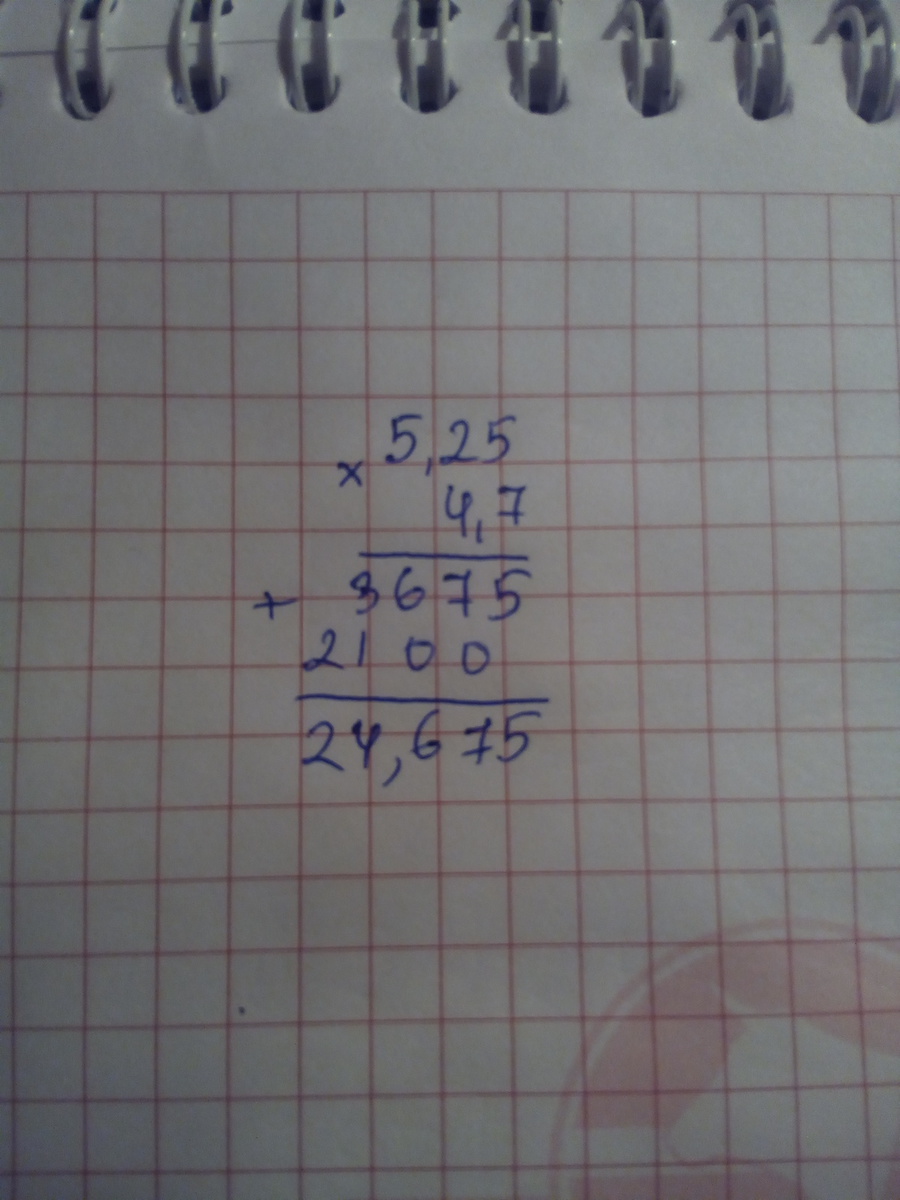 × 5,25
4,7
+ 3675
2100
24,675